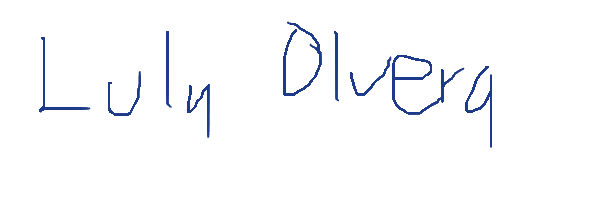 Luly Olvera